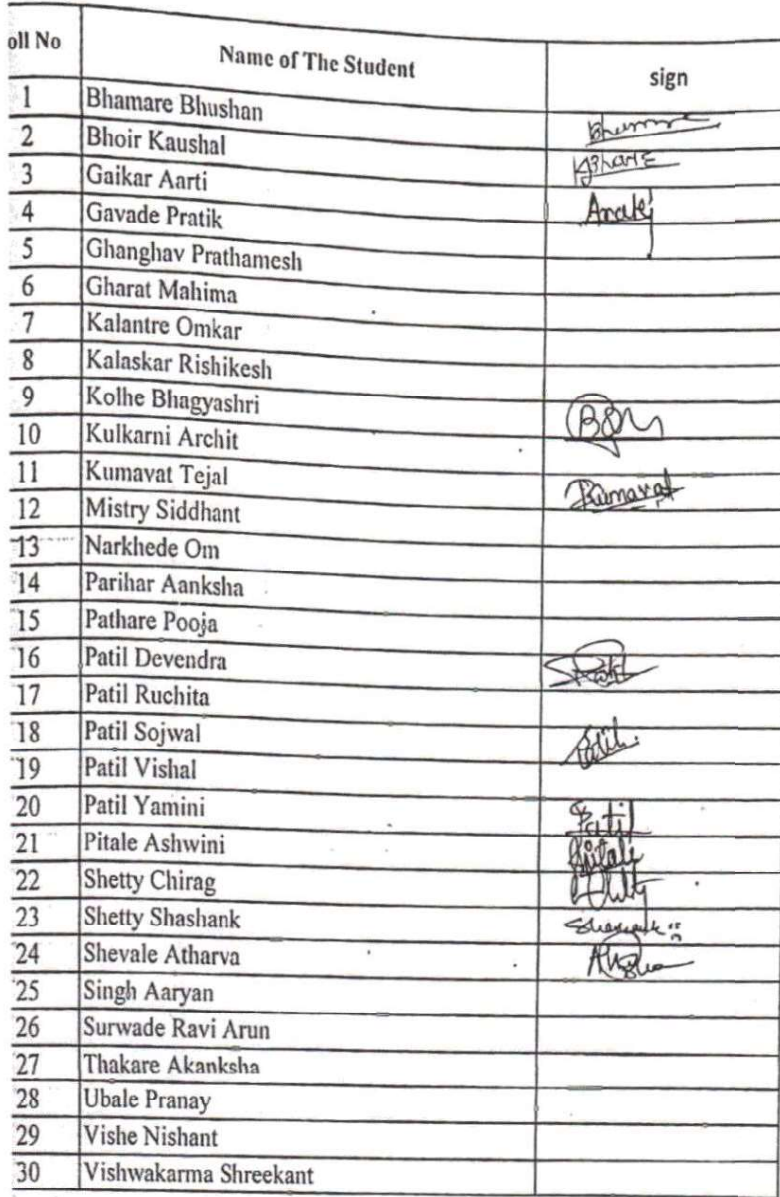 oll No Name of The Student sign
1 Bhamare Bhushan
2 Bhoir Kaushal
3 Gaikar Aarti
4 Gavade Pratik
5 Ghanghav Prathamesh
6 Gharat Mahima
7 Kalantre Omkar
8 Kalaskar Rishikesh
9 Kolhe Bhagyashri
10 Kulkarni Archit
11 Kumavat Tejal Kumavat
12 Mistry Siddhant
13 Narkhede Om
14 Parihar Aanksha
15 Pathare Pooja
16 Patil Devendra
17 Patil Ruchita
18 Patil Sojwal Patil
19 Patil Vishal
20 Patil Yamini Patil
21 Pitale Ashwini Apitale
22 Shetty Chirag
23 Shetty Shashank Shashank
24 Shevale Atharva
25 Singh Aaryan
26 Surwade Ravi Arun
27 Thakare Akanksha
28 Ubale Pranay
29 Vishe Nishant
30 Vishwakarma Shreekant